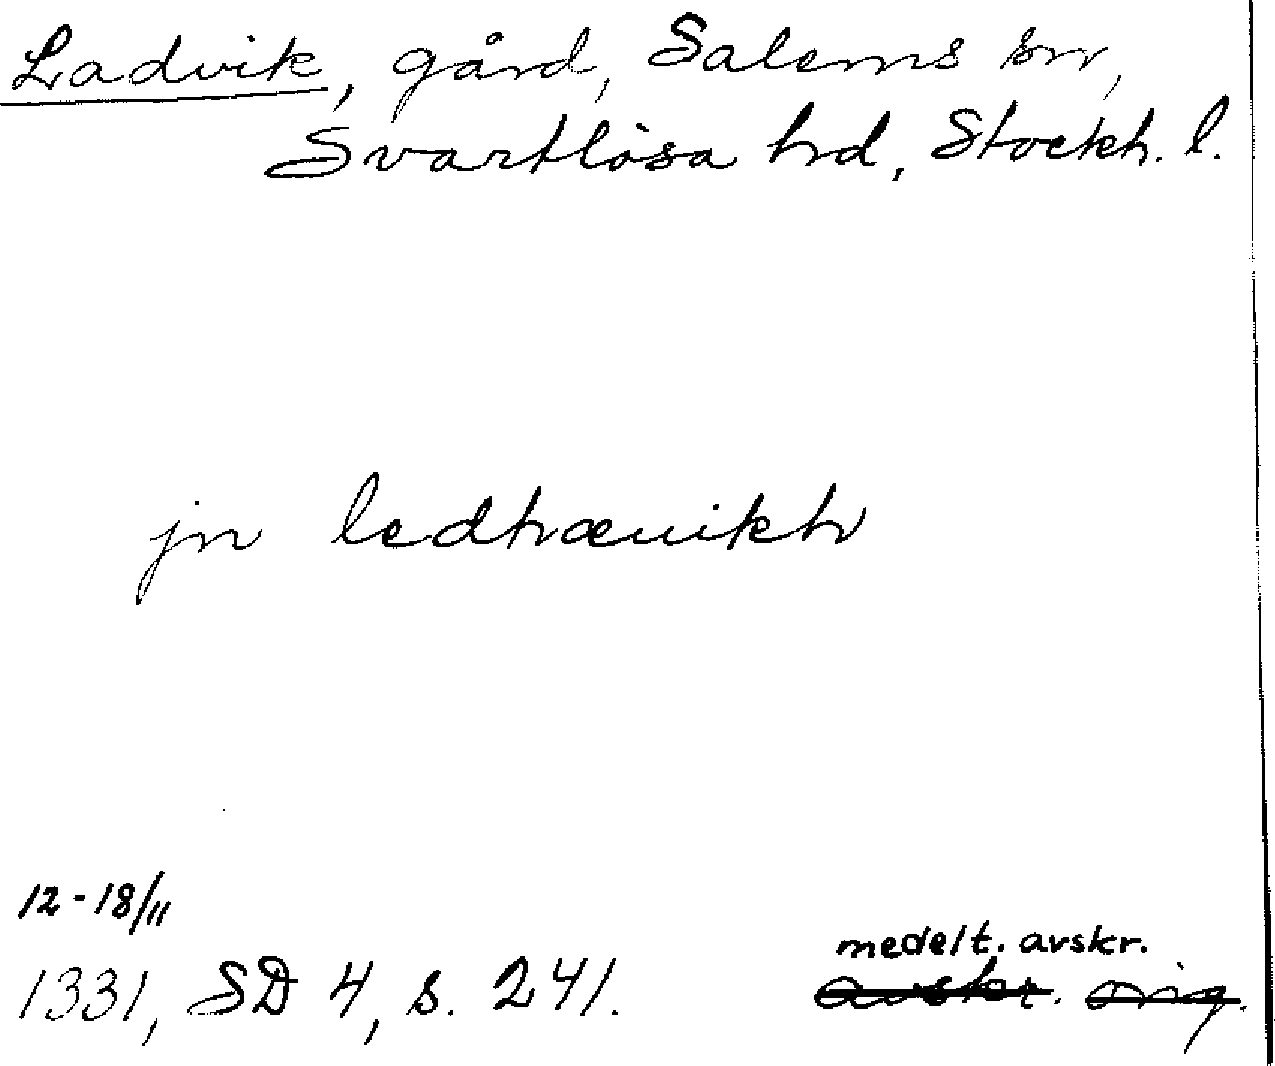 Ladvik, gård, Salems sn,
Svartlösa hd, Stockh. l.
jn ledhæuikh
12-18/11
medelt. avskr.
1331, SD 4, s. 241. avskr. orig.